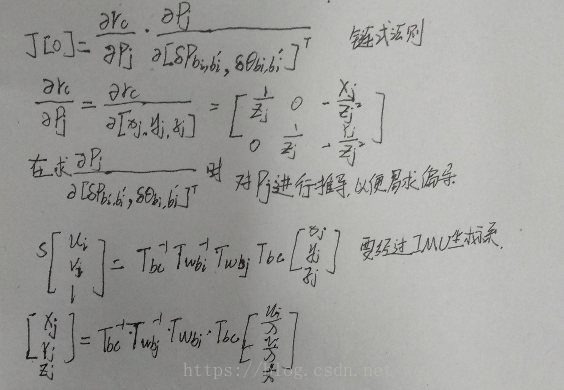 J[0] = ∂rc/∂Pj · ∂Pj/∂[δPbi,bi′, δθbi,bi′]ᵀ 链式法则
∂rc/∂Pj = ∂rc/∂[xj, yj, zj] = [1/zj 0 -xj/zj²; 0 1/zj -yj/zj²]
在求 ∂Pj/∂[δPbi,bi′, δθbi,bi′]ᵀ 时 对Pj进行推导,以便易求偏导
s[ui; vi; 1] = Tbc⁻¹ Twbi⁻¹ Twbj Tbc [xj; yj; zj] 要经过IMU坐标系.
[xj; yj; zj] = Tbc⁻¹·Twbj⁻¹·Twbi·Tbc [ui/λ; vi/λ; 1/λ]
https://blog.csdn.net